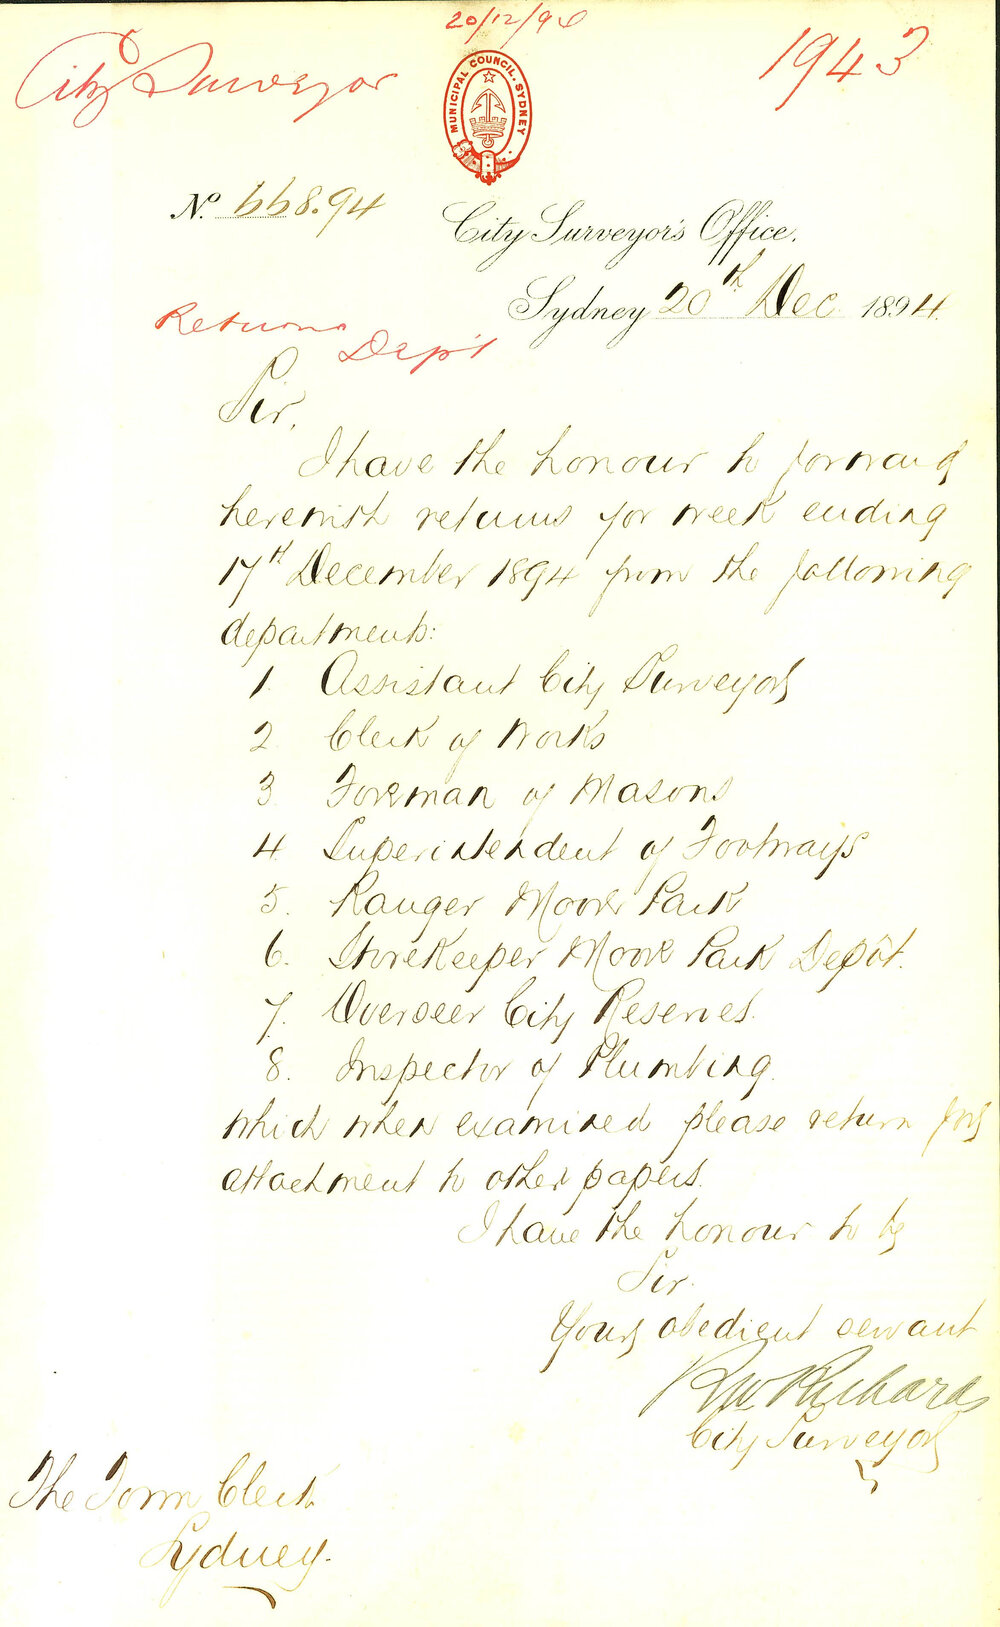 20/12/94
City Surveyor
1943
MUNICIPAL COUNCIL. SYDNEY
No. 668.94
City Surveyor's Office.
Sydney 20th Dec. 1894.
Returns
Dep't
Sir,
I have the honour to forward
herewith returns for week ending
17th December 1894 from the following
departments:
1. Assistant City Surveyor
2. Clerk of Works
3. Foreman of Masons
4. Superintendent of Footways
5. Ranger Moore Park
6. Storekeeper Moore Park Depôt.
7. Overseer City Reserves.
8. Inspector of Plumbing.
which when examined please return for
attachment to other papers.
I have the honour to be
Sir.
Your obedient servant
RW Richards
City Surveyor
The Town Clerk
Sydney.